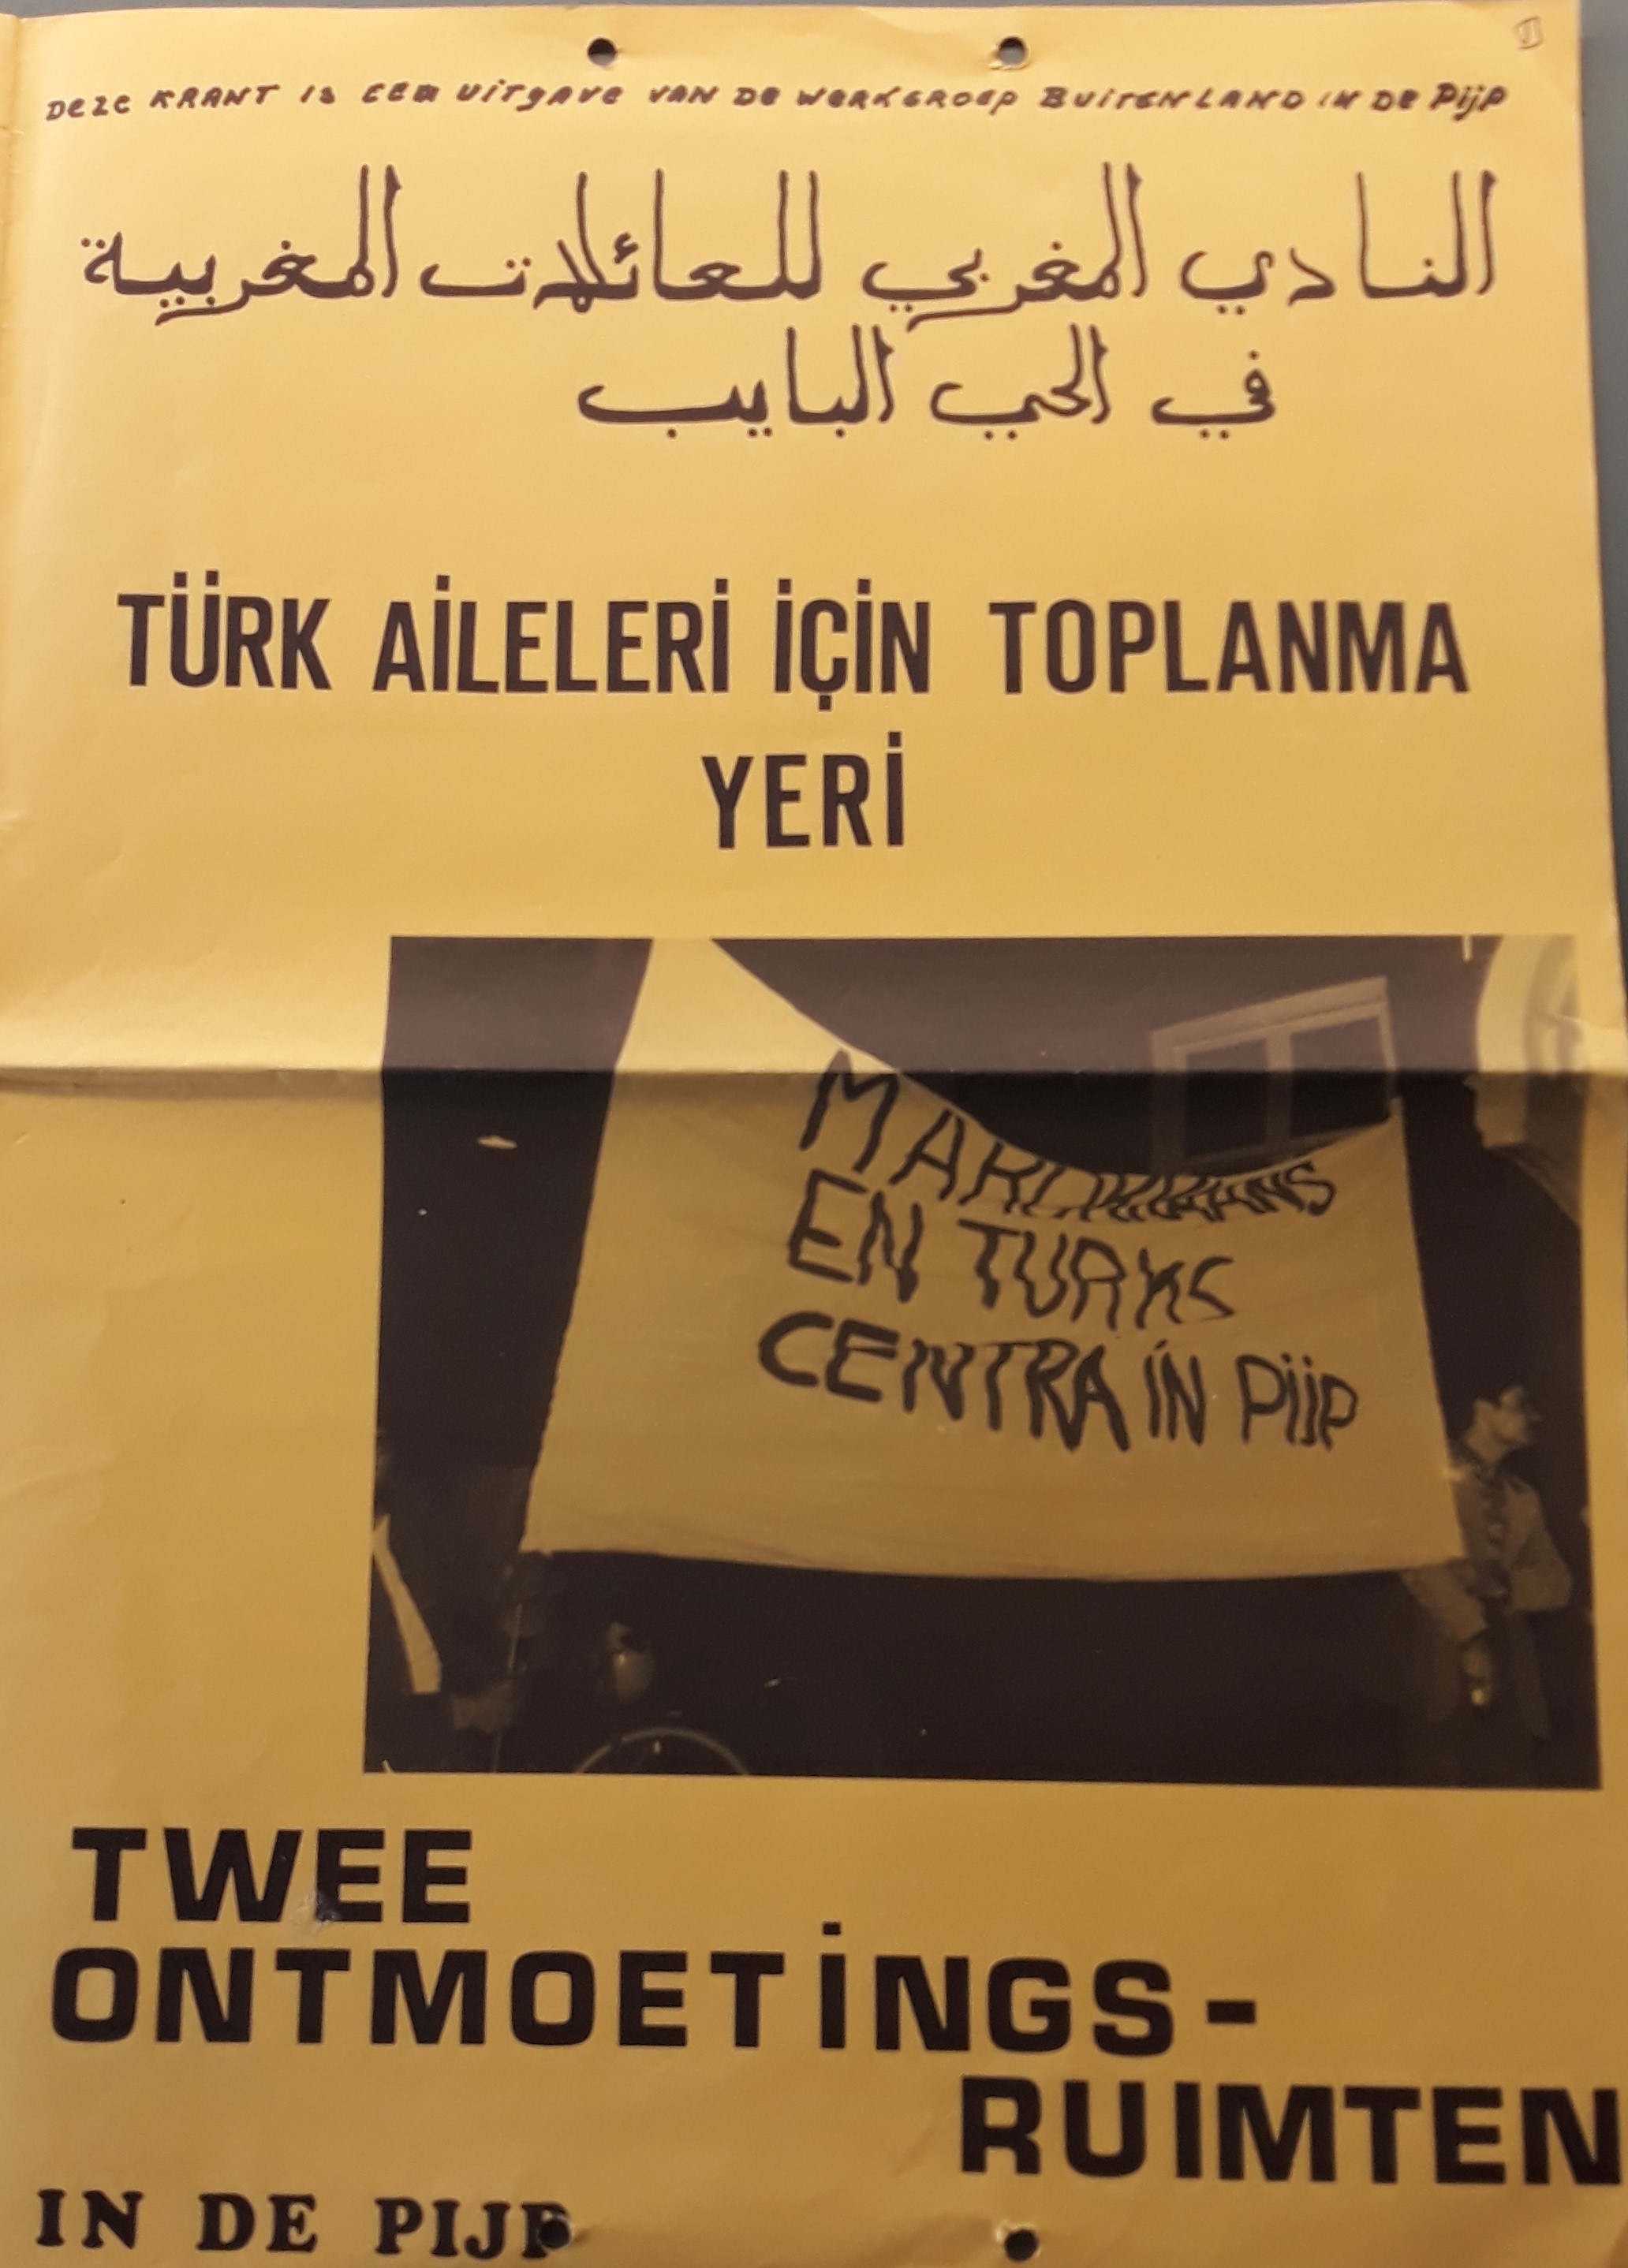 DEZE KRANT IS EEN UITGAVE VAN DE WERKGROEP BUITENLAND IN DE PIJP
النادي المغربي للعائلات المغربية
في الحي البايب
TÜRK AİLELERİ İÇİN TOPLANMA
YERİ
MAROKKAANS
EN TURKS
CENTRA IN PIJP
TWEE
ONTMOETINGS-
RUIMTEN
IN DE PIJP